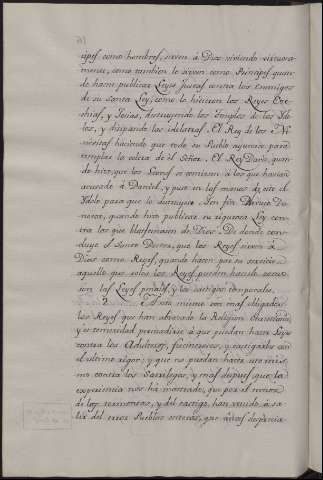 cipes como hombres, sirven á Dios viviendo virtuosa-
mente, como tambien le sirven como Principes quan-
do hacen publicar Leyes Justas contra los Enemigos
de su santa Ley, como lo hicieron los Reyes Eze-
chias, y Josias, destruyendo los Templos de los Ydo-
los, y disipando las idolatrias. El Rey de los Ni-
nivitas haciendo que todo su Pueblo ayunase para
templar la colera de el Señor. El Rey Dario, quan-
do hizo que los Leones se comiesen á los que havian
acusado á Daniel, y puso en sus manos de este el
Ydolo para que lo destruyese. En fin
quando hizo publicar su rigurosa Ley con-
tra los que blasfemasen de Dios. De donde con-
cluye el Santo Doctor, que los Reyes sirven á
Dios como Reyes, quando hacen por su servicio
aquello que solos los Reyes pueden hacer, como
son las Leyes penales, y los castigos temporales.
2. Esto mismo son mas obligados
los Reyes que han abrazado la Religion Christiana,
y es temeridad persuadirse á que puedan hacer Leyes
contra los Adulteros, y castigarlos con
el ultimo rigor; y que no puedan hacer esto mis-
mo contra los Sacrilegos, y mas despues que la
experiencia nos ha mostrado, que por el medio
de los tormentos, y del castigo, han venido á sa-
lir del error Pueblos enteros, que antes despecia-